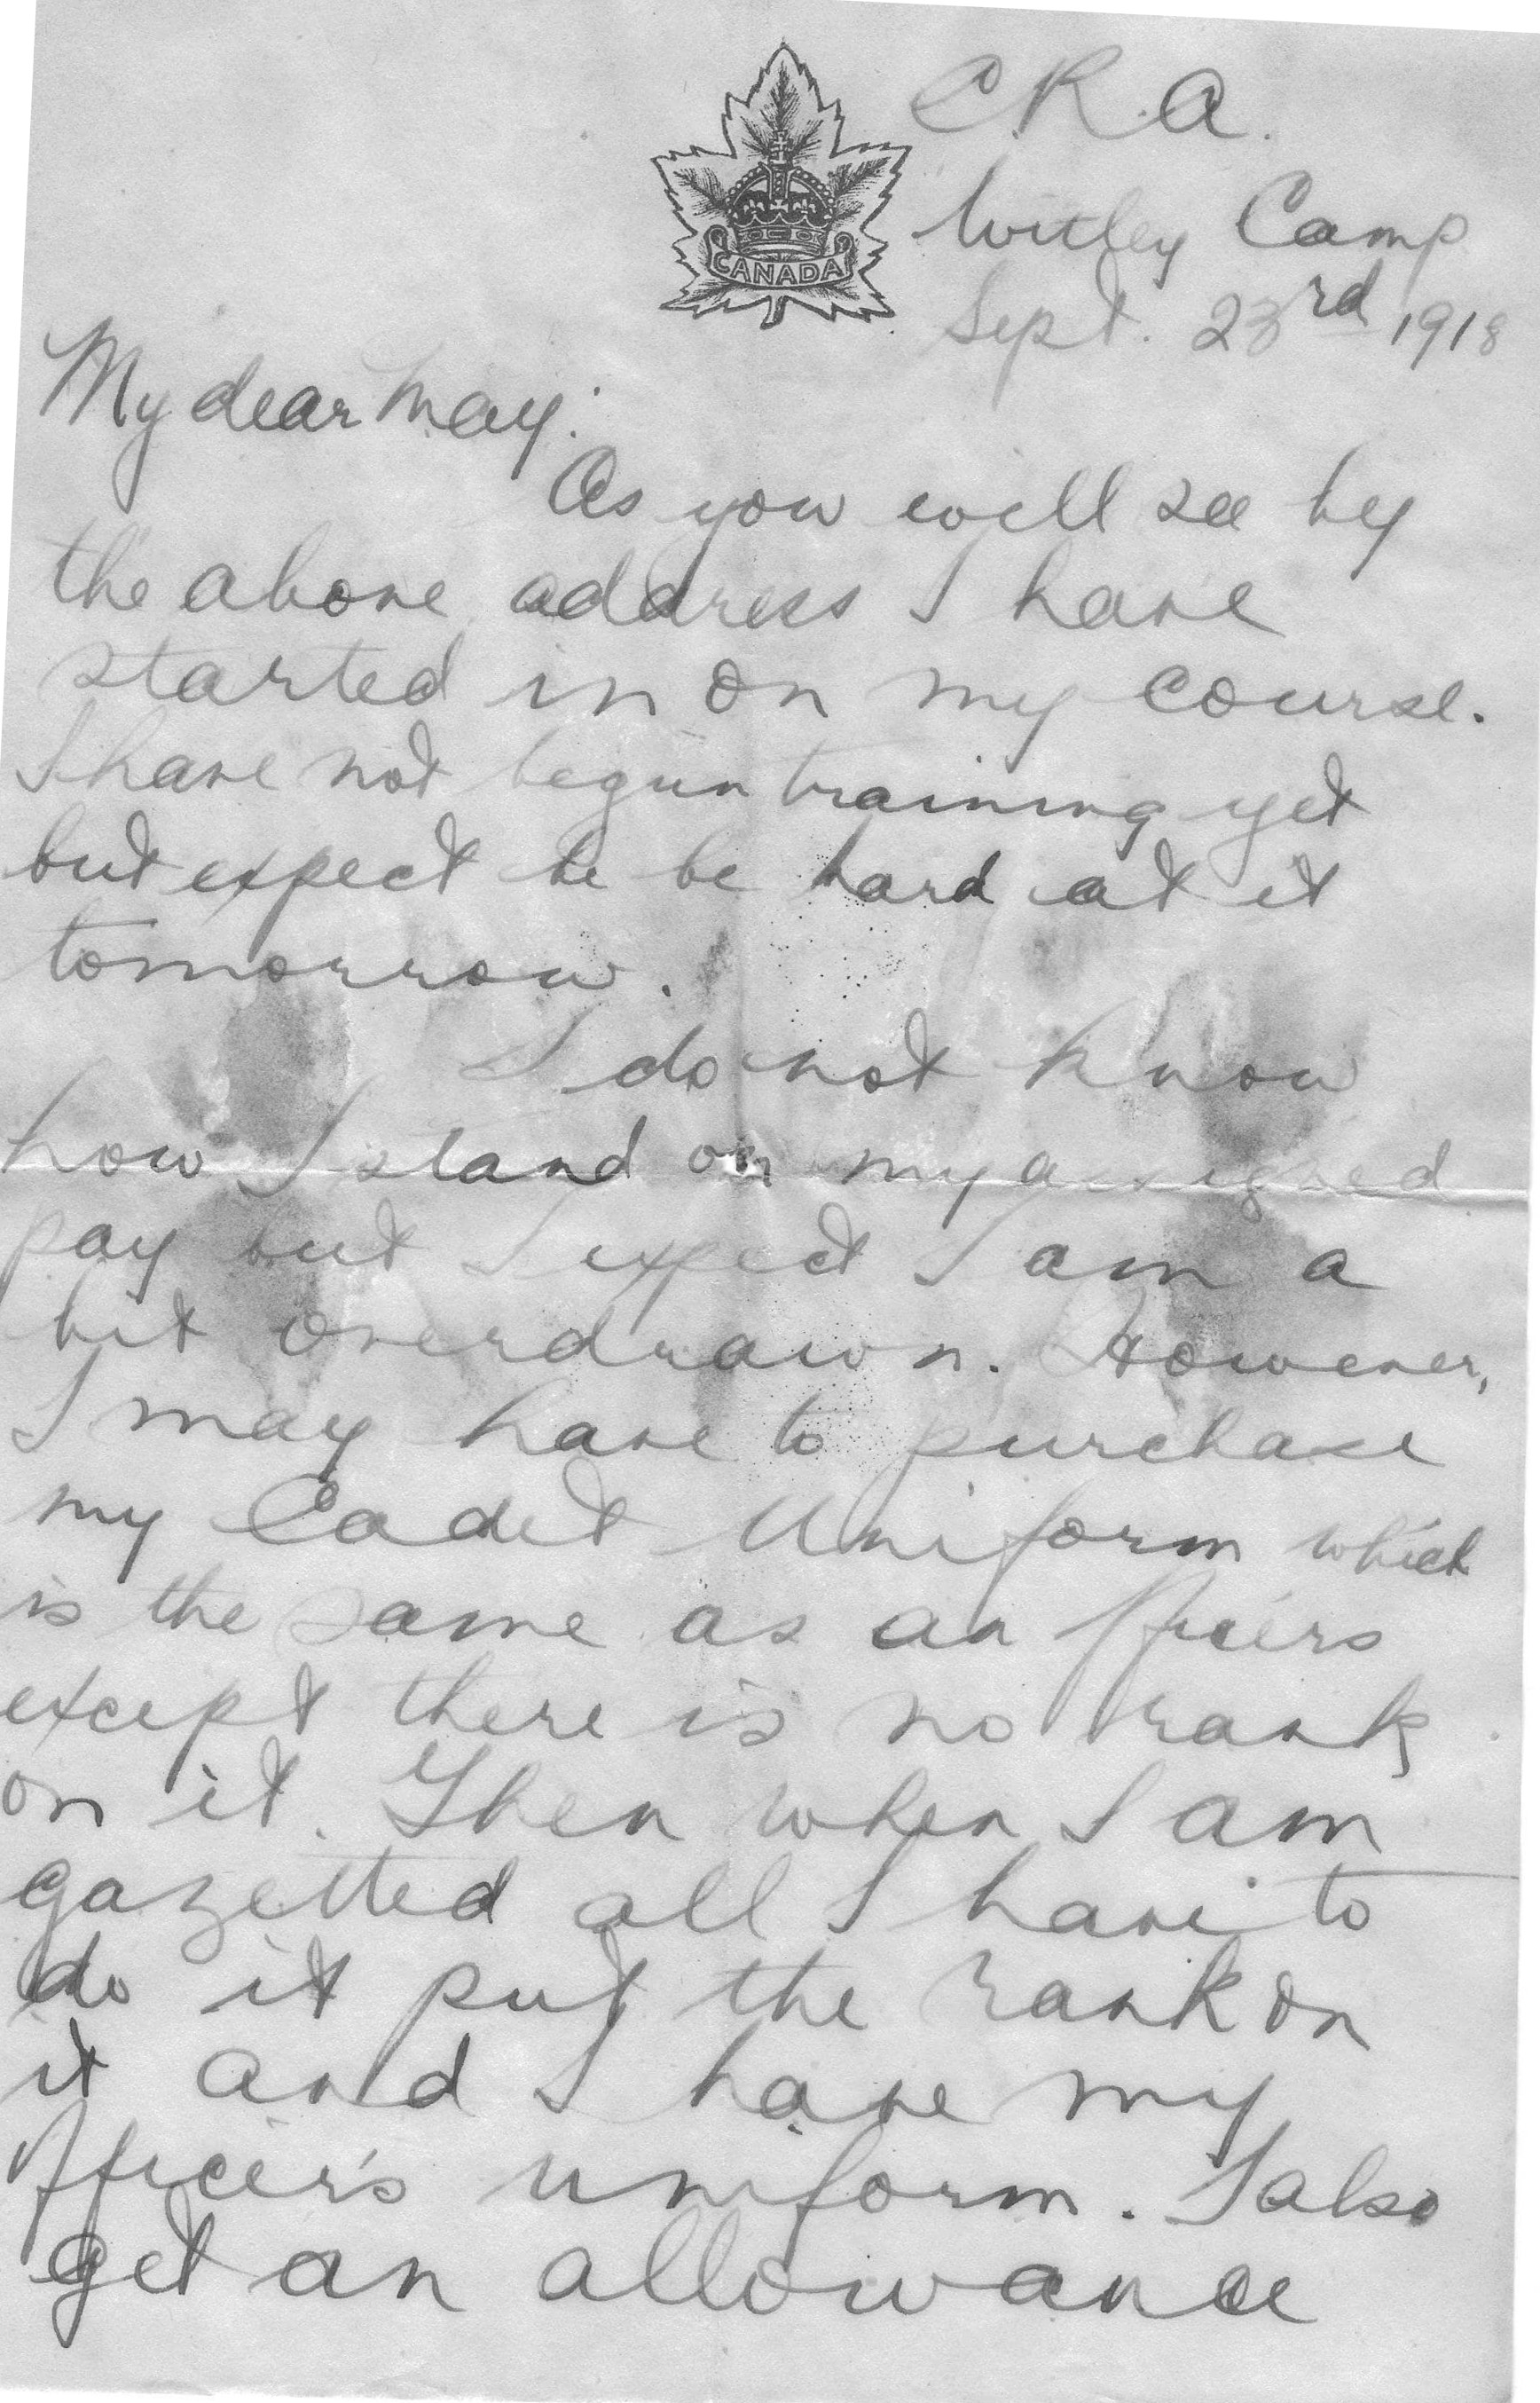 C.R.A.
CANADA
Witley Camp
Sept. 23rd 1918
My dear May:
As you will see by
the above address I have
started in on my course.
I have not begun training yet
but expect to be hard at it
tomorrow.
I do not know
how I stand on my assigned
pay but I expect I am a
bit overdrawn. However,
I may have to purchase
my Cadet Uniform which
is the same as an officers
except there is no rank
on it. Then when I am
gazetted all I have to
do it put the rank on
it and I have my
officer's uniform. I also
get an allowance